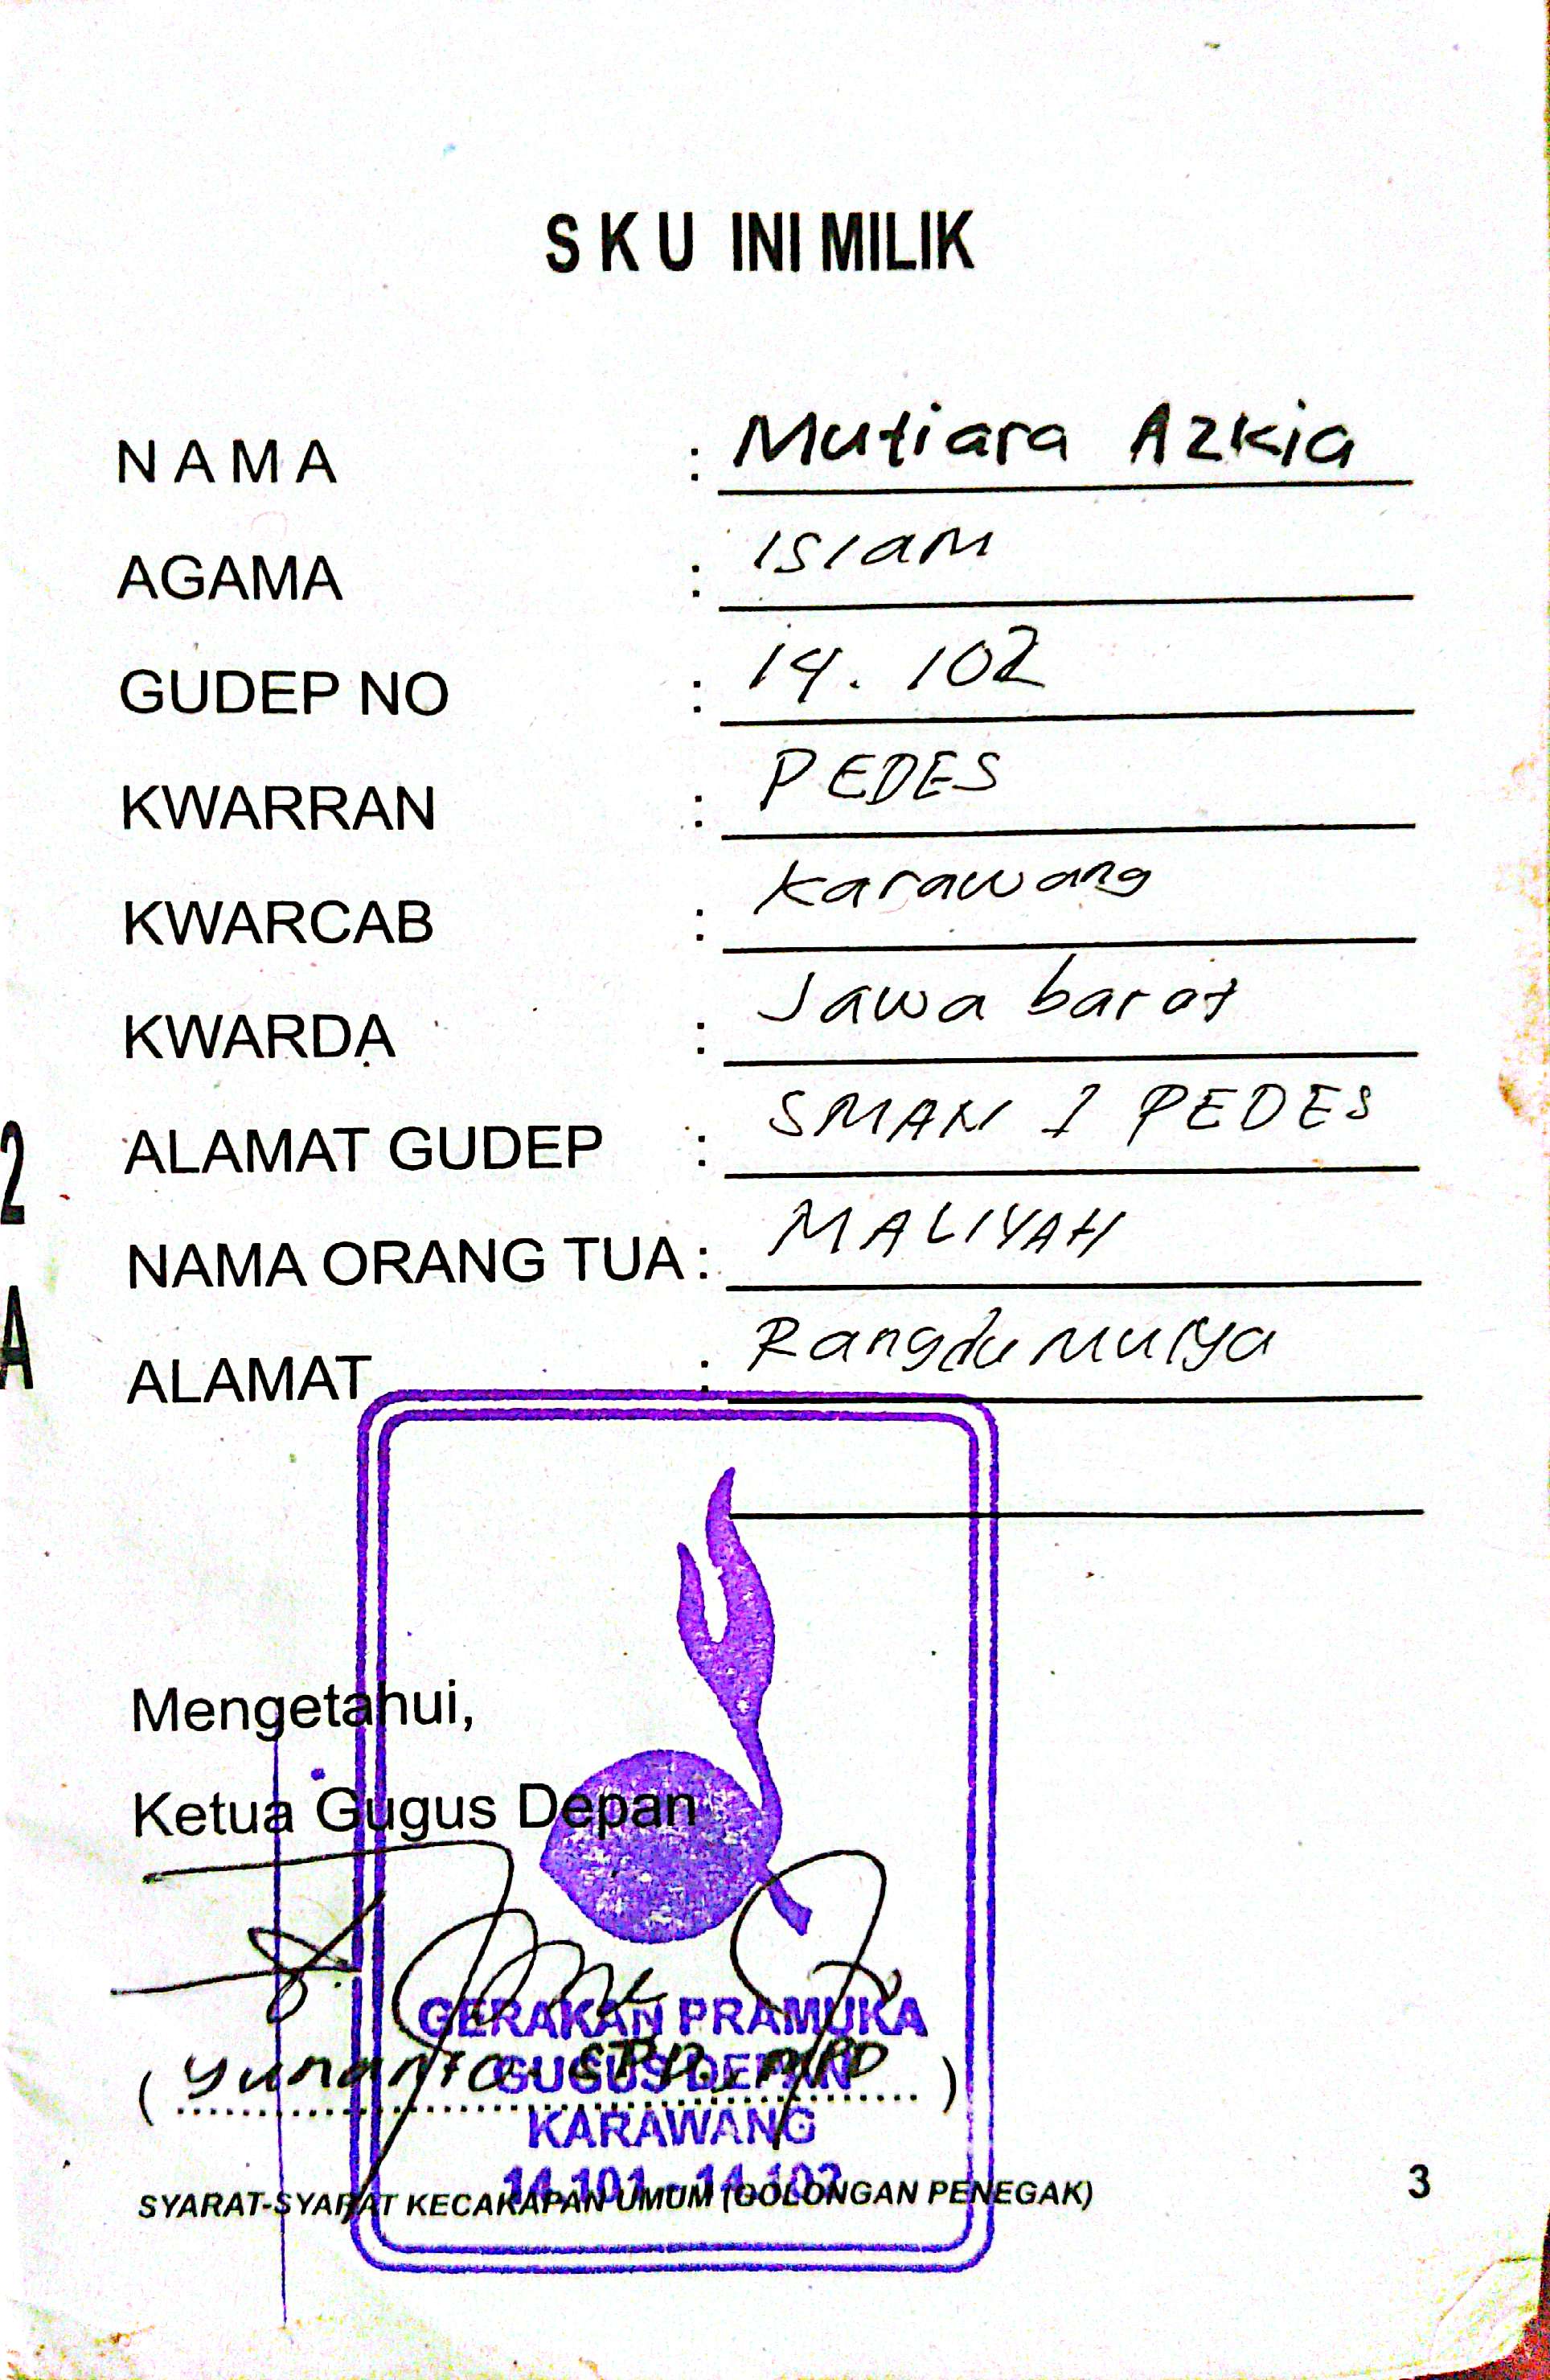 S K U INI MILIK
N A M A : Mutiara Azkia
AGAMA : Islam
GUDEP NO : 14. 102
KWARRAN : PEDES
KWARCAB : Karawang
KWARDA : Jawa barat
ALAMAT GUDEP : SMAN 1 PEDES
NAMA ORANG TUA : MALIYAH
ALAMAT : Rangdu Mulya
2
A
Mengetahui,
Ketua Gugus Depan
GERAKAN PRAMUKA
( Yunanto. SPD, MPD )
GUGUS DEPAN
KARAWANG
14.101 - 14.102
SYARAT-SYARAT KECAKAPAN UMUM (GOLONGAN PENEGAK) 3